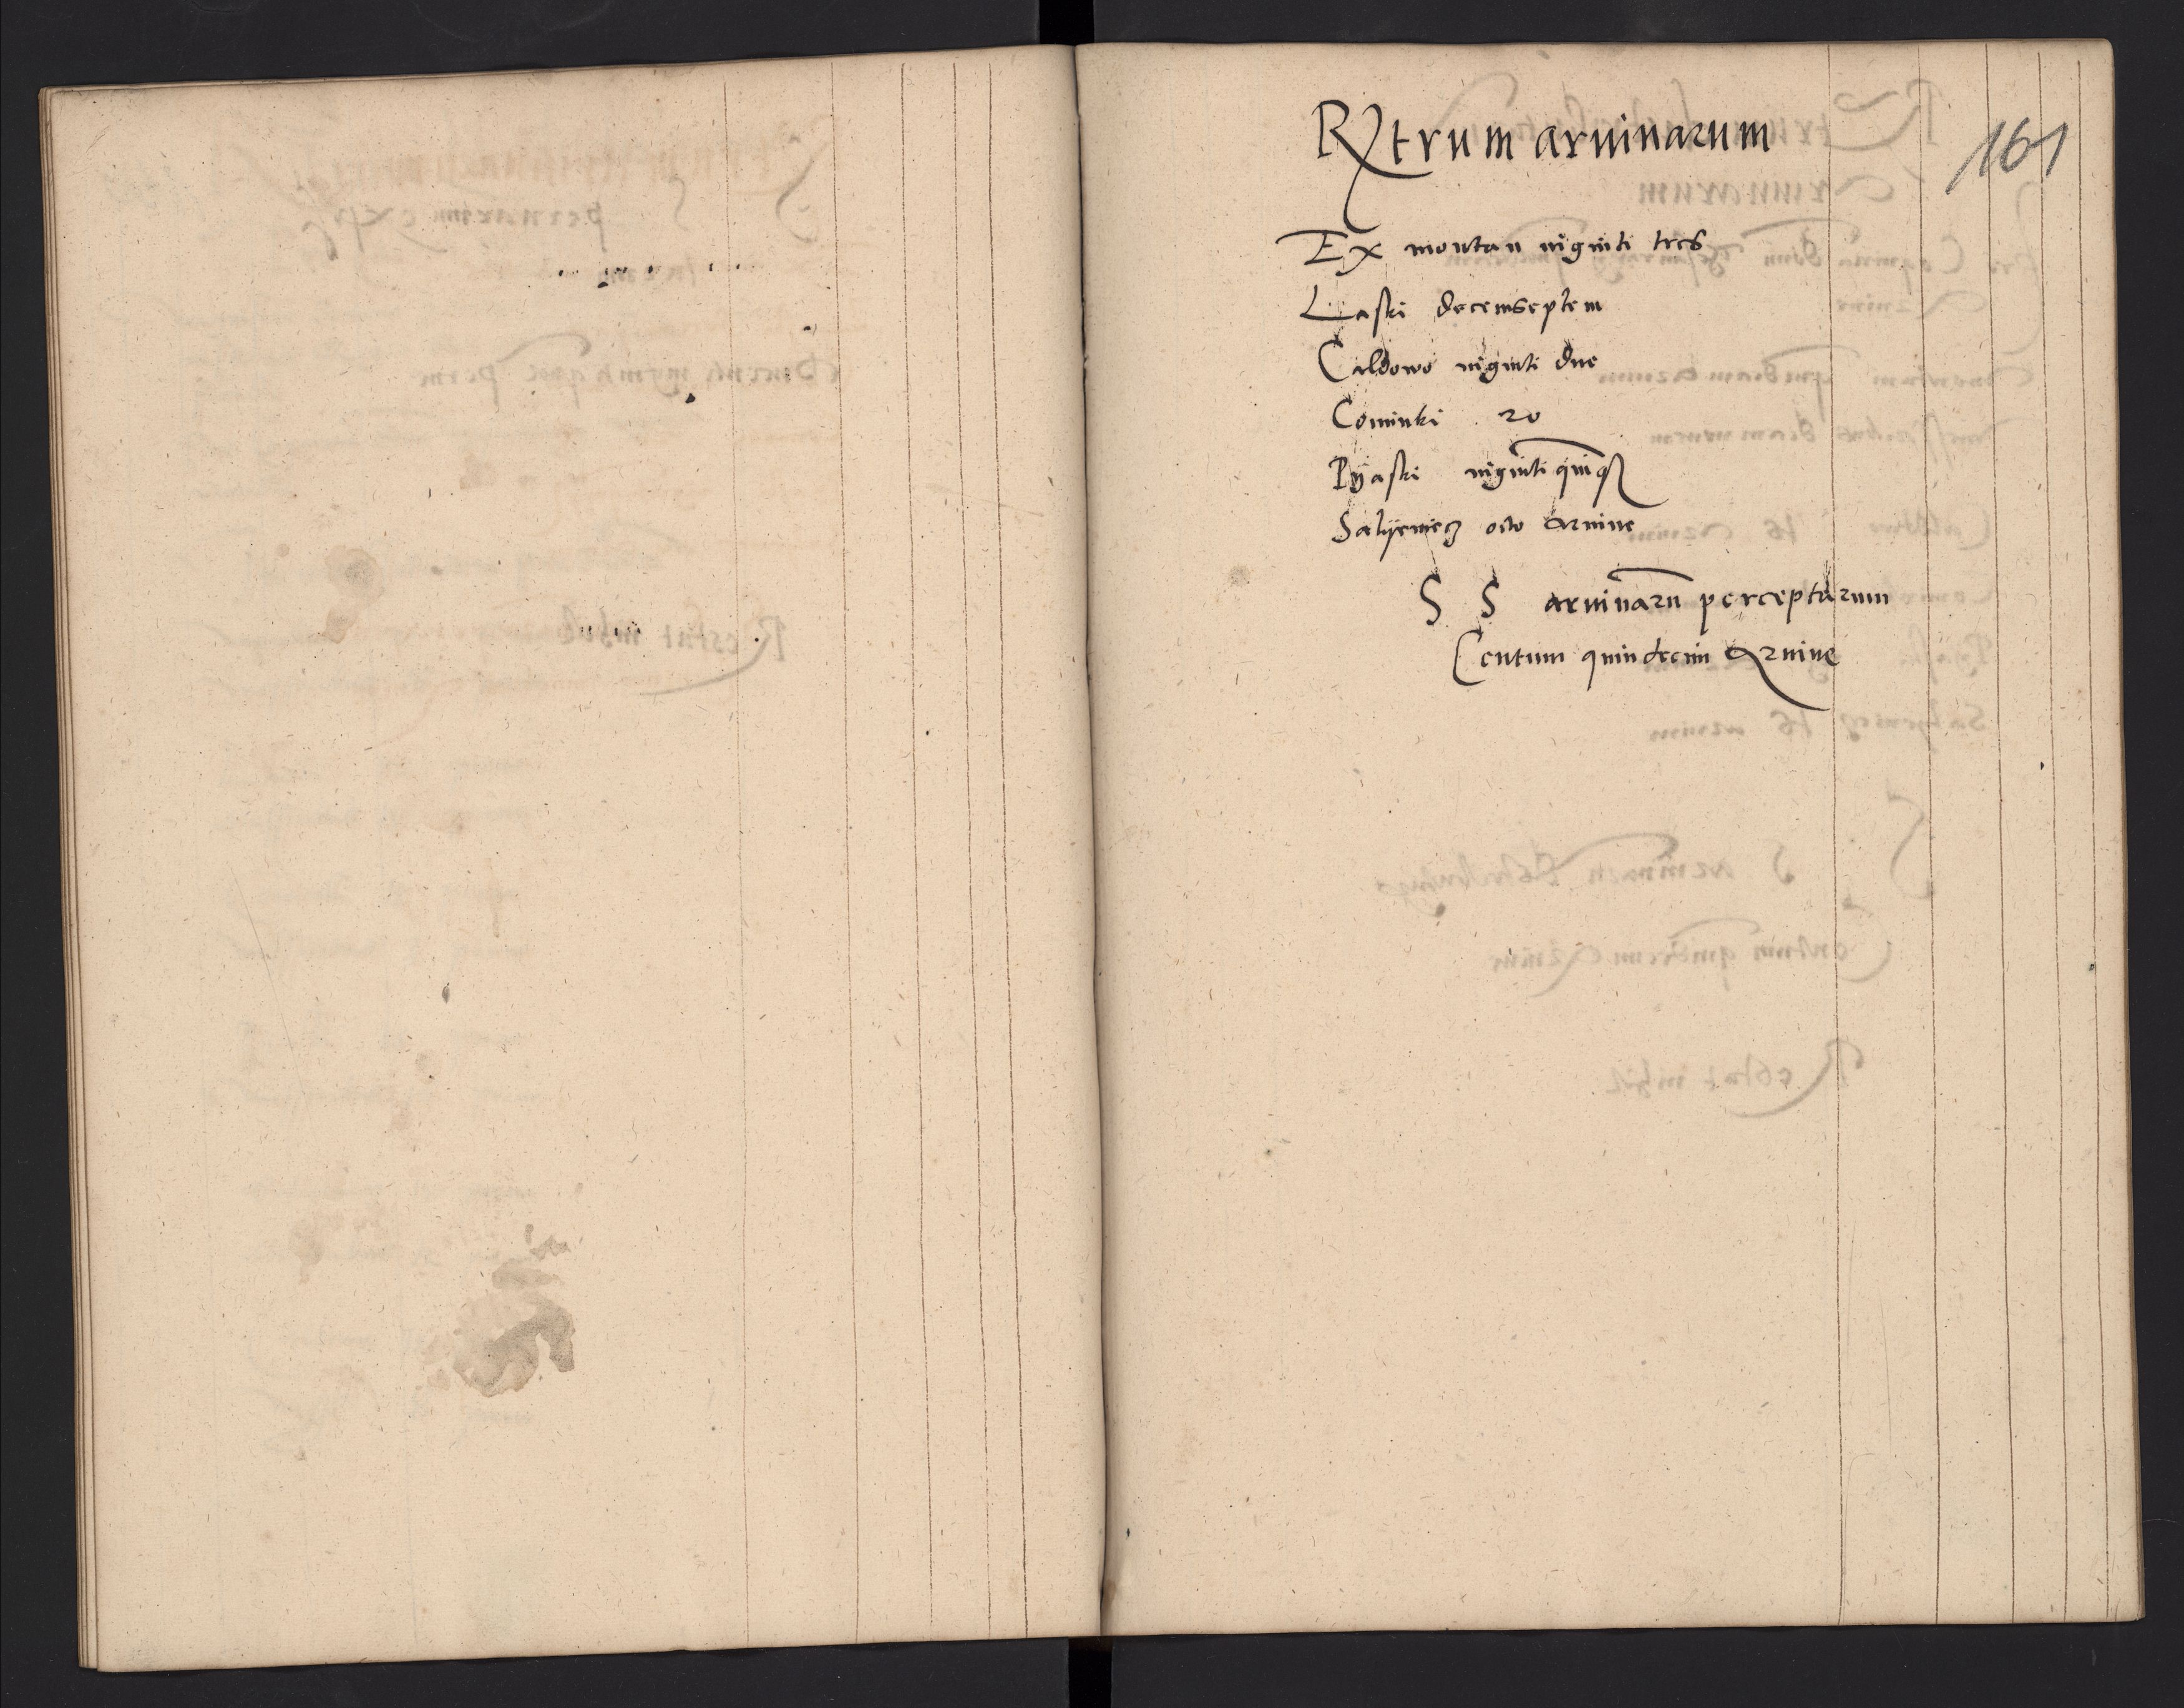 Rtrum arvinarum
161
Ex montan viginti tres
Laski decemseptem
Caldowo viginti due
Cominki 20
Pyaski viginti quiqꝫ
Salyemecz octo arvine
S S arvinaru perceptarum
Centum quindecim Arvine